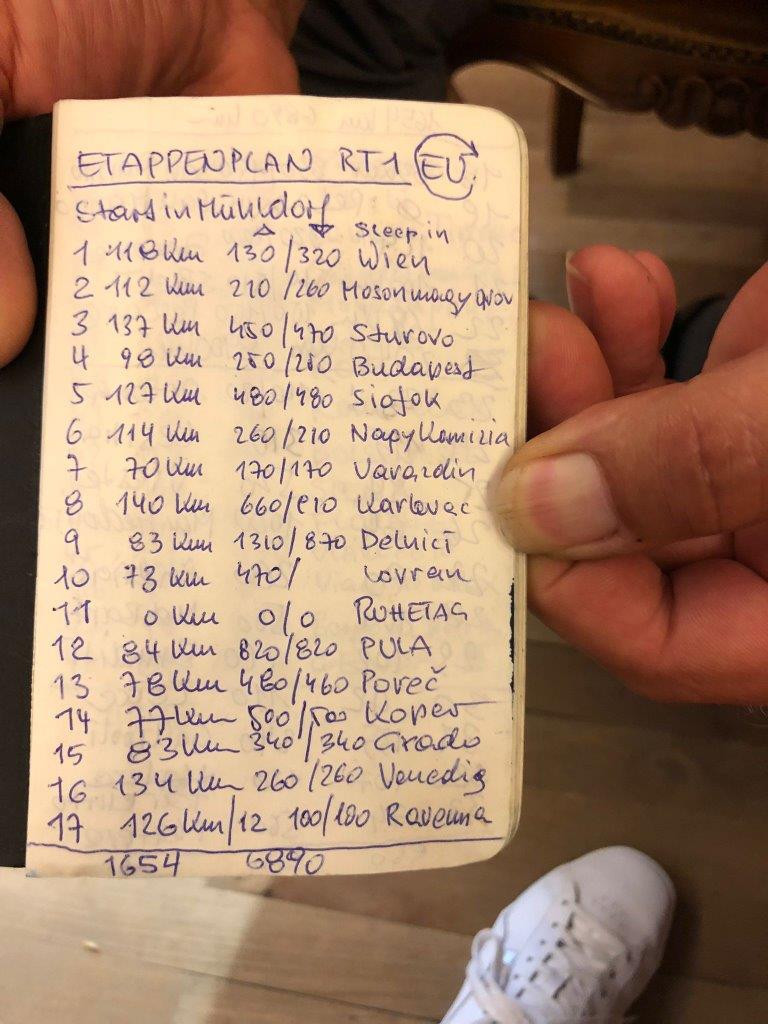 ETAPPENPLAN RT1 EU
Start in Mühldorf
sleep in
1 118 Km 130/320 Wien
2 112 Km 210/260 Mosonmagyarov
3 137 Km 450/470 Sturovo
4 98 Km 250/250 Budapest
5 127 Km 480/480 Siofok
6 114 Km 260/210 NagyKanizia
7 70 Km 170/170 Varazdin
8 140 Km 660/610 Karlovac
9 83 Km 1310/870 Delnici
10 73 Km 470/ Lovran
11 0 Km 0/0 RUHETAG
12 84 Km 820/820 PULA
13 78 Km 480/460 Poreč
14 77 Km 500/500 Koper
15 83 Km 340/340 Grado
16 134 Km 260/260 Venedig
17 126 Km/12 100/100 Ravenna
1654 6890